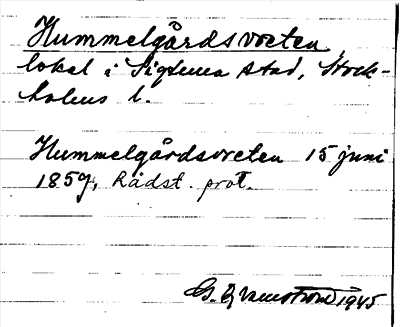 Hummelgårdsvreten,
lokal i Sigtuna stad, Stock-
holms l.
Hummelgårdsvreten 15 juni
1859, Rådst. prot.
G. 1945